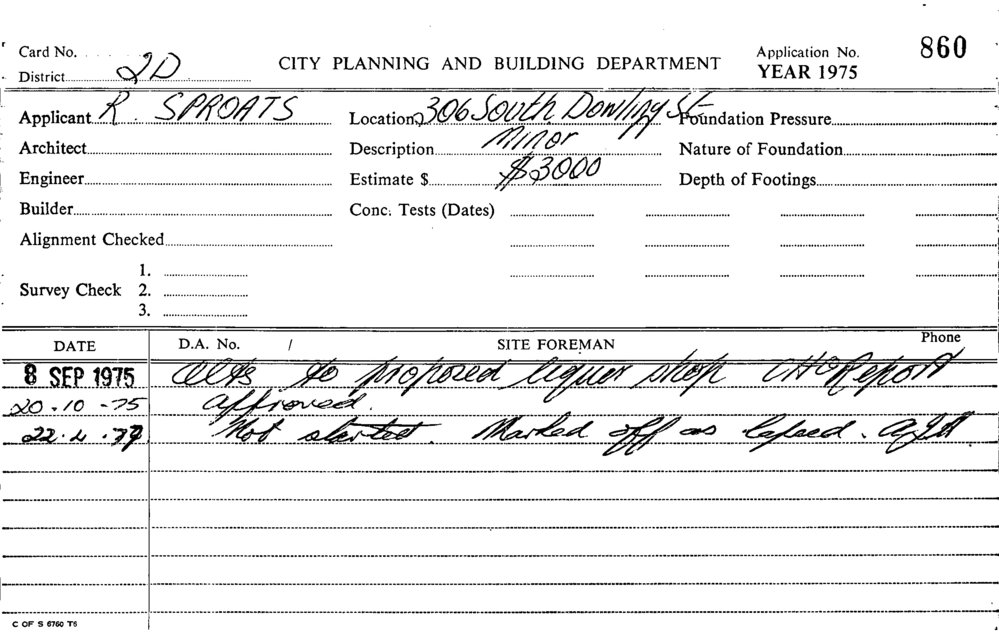 Card No.
District 2D
CITY PLANNING AND BUILDING DEPARTMENT
Application No. 860
YEAR 1975
Applicant R. SPROATS
Location 306 South Dowling St
Foundation Pressure
Architect
Description Minor
Nature of Foundation
Engineer
Estimate $ $3000
Depth of Footings
Builder
Conc. Tests (Dates)
Alignment Checked
1.
Survey Check 2.
3.
DATE D.A. No. / SITE FOREMAN Phone
8 SEP 1975 Alts to proposed liquer shop Report
20.10.75 approved.
22.4.77 Not started. Marked off as lapsed.
C OF S 6760 T6